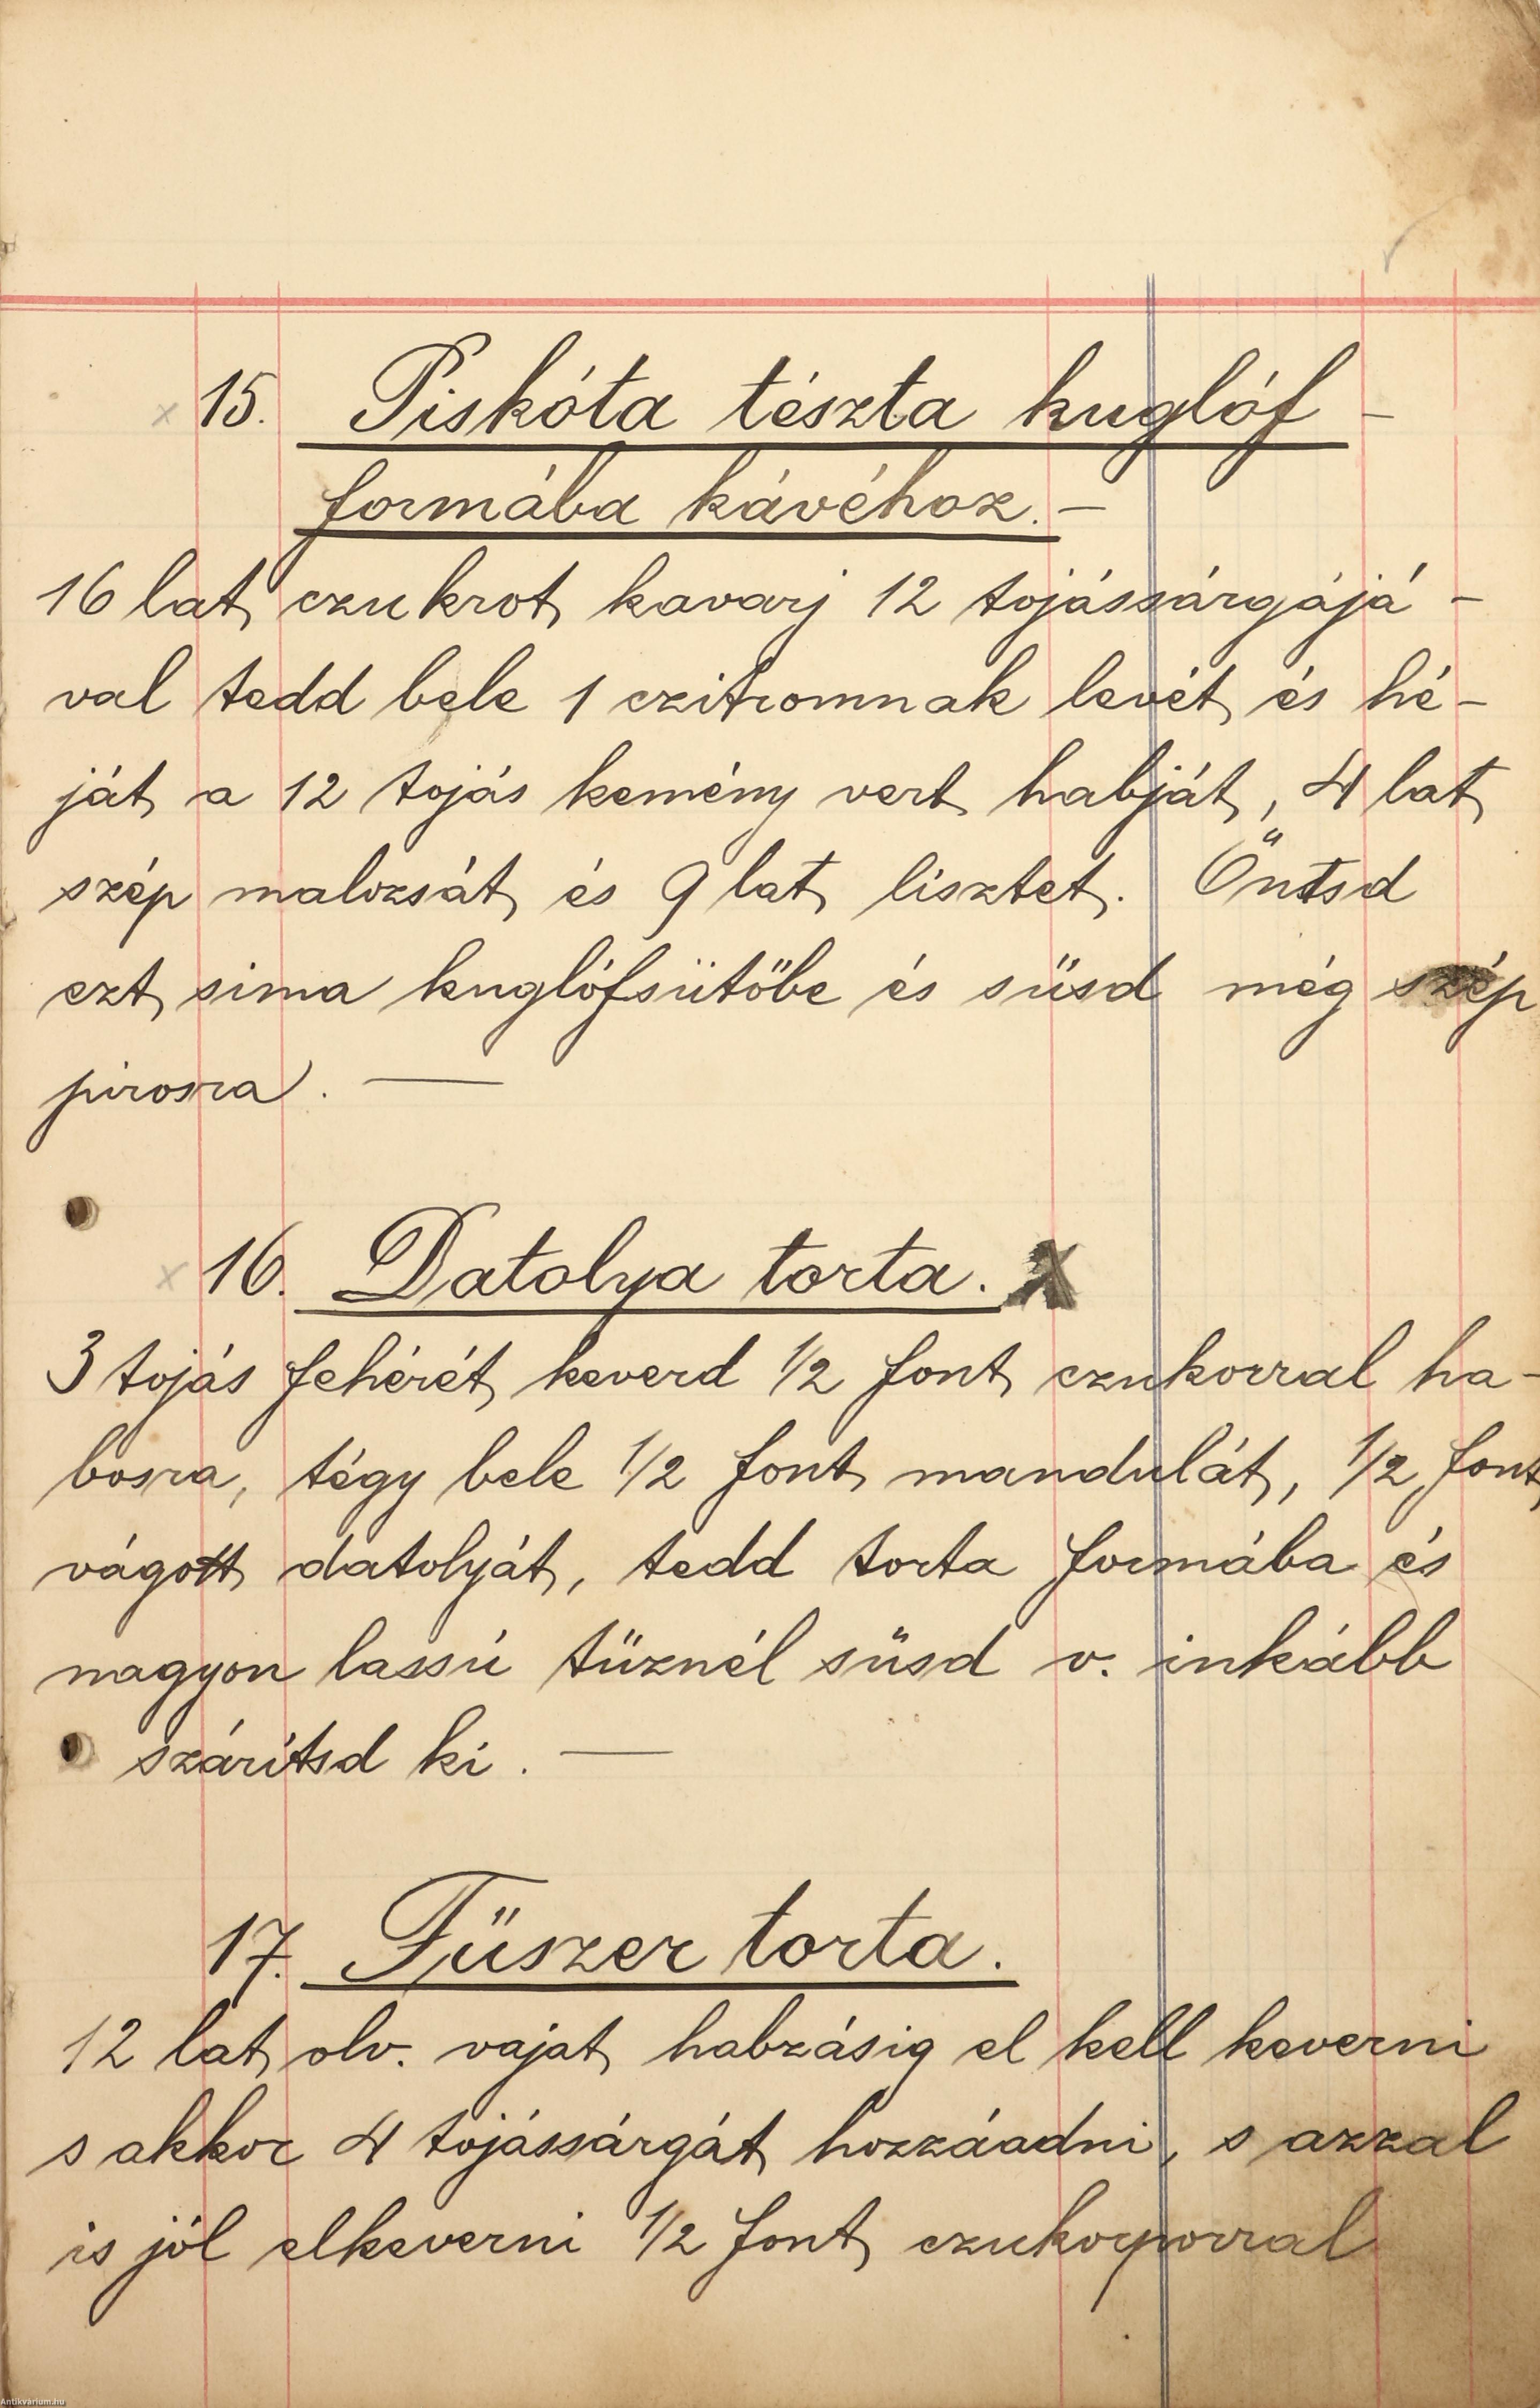 15. Piskóta tészta kuglóf -
formába kávéhoz. -
16 lat czukrot kavarj 12 tojássárgájá -
val tedd bele 1 czitromnak levét és hé -
ját a 12 tojás kemény vert habját, 4 lat
szép malozsát és 9 lat lisztet. Öntsd
ezt sima kuglófsütőbe és süsd még szép
pirosra. —
x 16. Datolya torta. X
3 tojás fehérét keverd 1/2 font czukorral ha -
bosra, tégy bele 1/2 font mandulát, 1/2 font
vágott datolyát, tedd torta formába és
nagyon lassú tűznél süsd v. inkább
szárítsd ki. —
17. Fűszer torta.
12 lat olv. vajat habzásig el kell keverni
s akkor 4 tojássárgát hozzáadni, s azzal
is jól elkeverni 1/2 font czukorporral
Antikvarium.hu